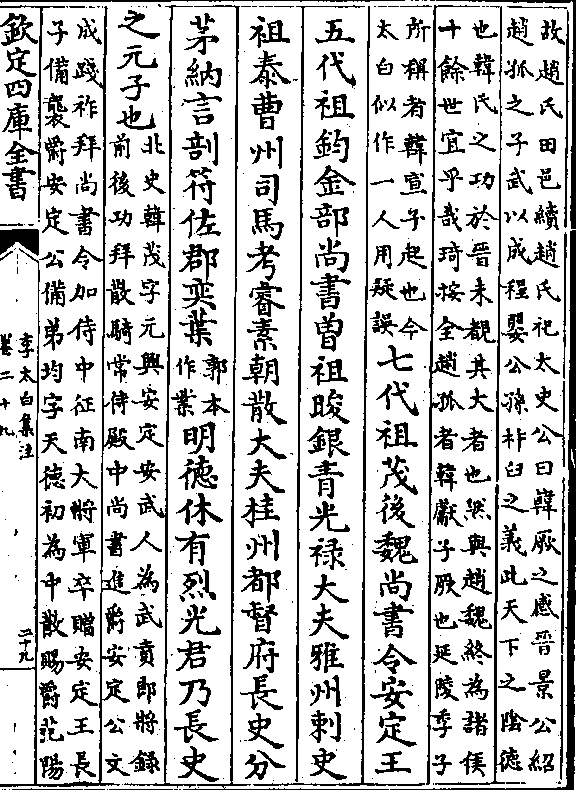 故趙氏田邑續趙氏祀太史公曰韓厥之感晉景公紹
趙孤之子武以成程嬰公孫杵臼之義此天下之陰德
也韓氏之功於晉未覩其大者也然與趙魏終為諸侯
十餘世宜乎哉琦按全趙孤者韓獻子厥也延陵季子
所稱者韓宣子起也今
太白似作一人用疑誤
七代祖茂後魏尚書令安定王
五代祖鈞金部尚書曽祖晙銀青光禄大夫雅州刺史
祖泰曹州司馬考睿素朝散大夫桂州都督府長史分
茅納言剖符佐郡奕葉
郭本
作業
明德休有烈光君乃長史
之元子也
北史韓茂字元興安定安武人為武賁郎將録
前後功拜散騎常侍殿中尚書進爵安定公文
成踐祚拜尚書令加侍中征南大將軍卒贈安定王長
子備襲爵安定公備弟均字天德初為中散賜爵范陽
欽定四庫全書
李太白集注
卷二十九
二十九